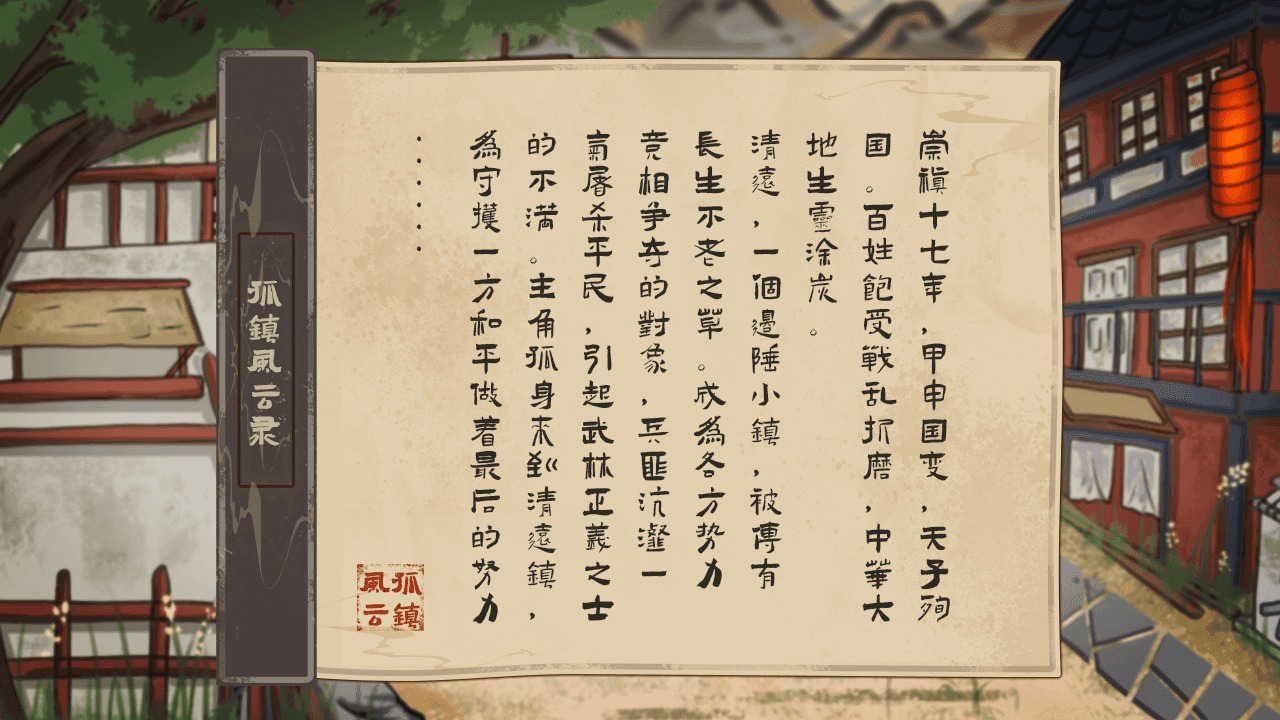 崇禎十七年，甲申国变，天子殉
国。百姓飽受戰乱折磨，中華大
地生靈涂炭。
清遠，一個邊陲小鎮，被傳有
長生不老之草。成為各方势力
竞相争夺的對象，兵匪沆瀣一
氣屠杀平民，引起武林正義之士
的不满。主角孤身来到清遠鎮，
為守護一方和平做着最后的努力
．．．．．．
孤鎮風云录
孤鎮
風云